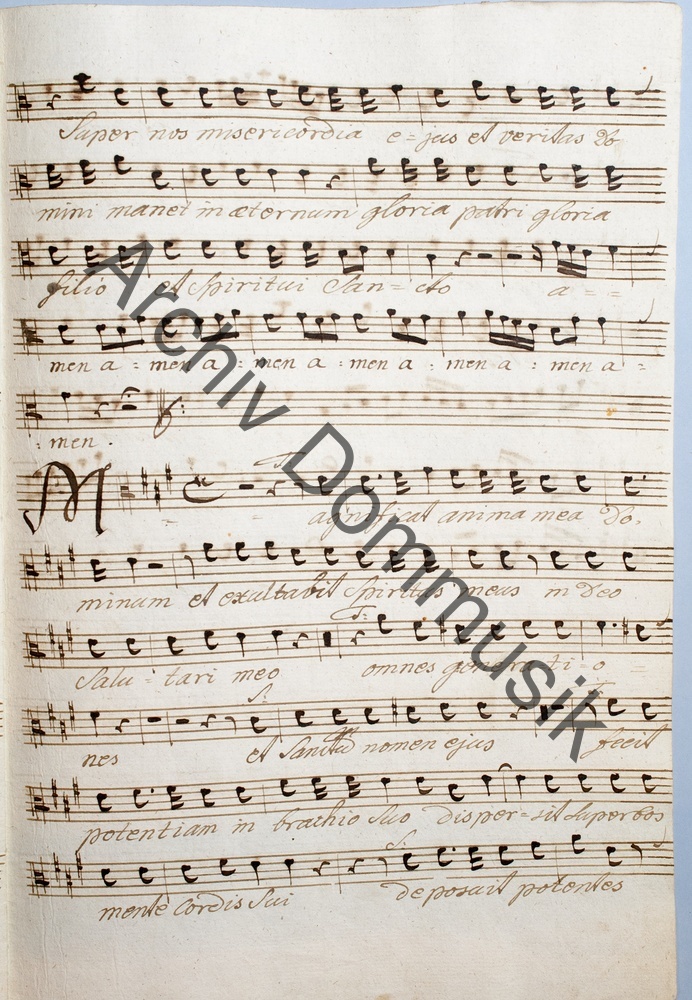 Super nos misericordia e = jus et veritas Do
mini manet in æternum gloria patri gloria
filio et Spiritui San = cto a = =
men a : men a : men a : men a : men a : men a =
: men .
T.
Magnificat anima mea Do.
minum et exultabit Spiritus meus in Deo
T.
Salu = tari meo omnes genera = ti = o =
S. T.
nes et Sanctum nomen ejus fecit
potentiam in brachio Suo disper = sit Superbos
S.
mente Cordis Sui deposuit potentes
Archiv Dommusik